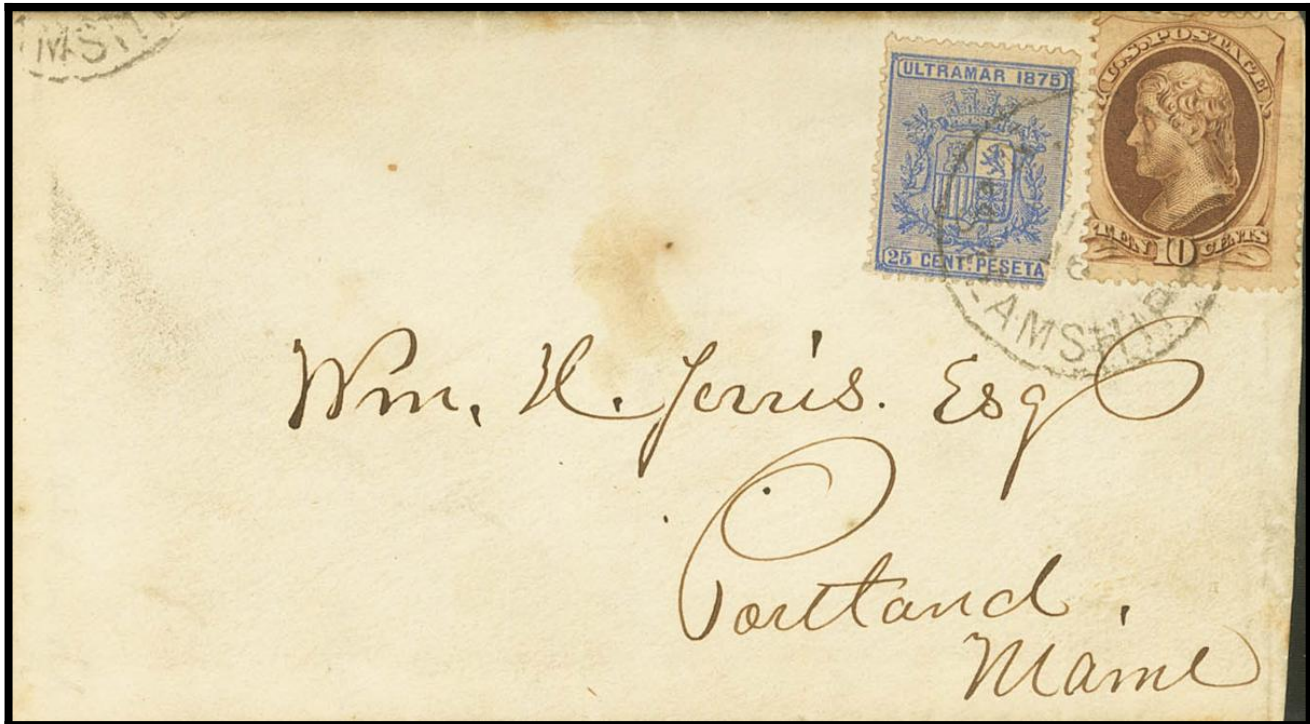 ULTRAMAR 1875
25 CENT. PESETA
U.S. POSTAGE
TEN 10 CENTS
Wm. H. Jerris. Esq
Portland,
Maine